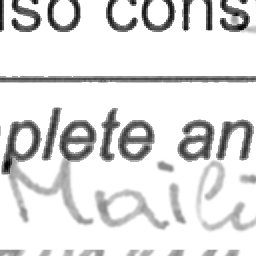 lso cons
plete an
Maili